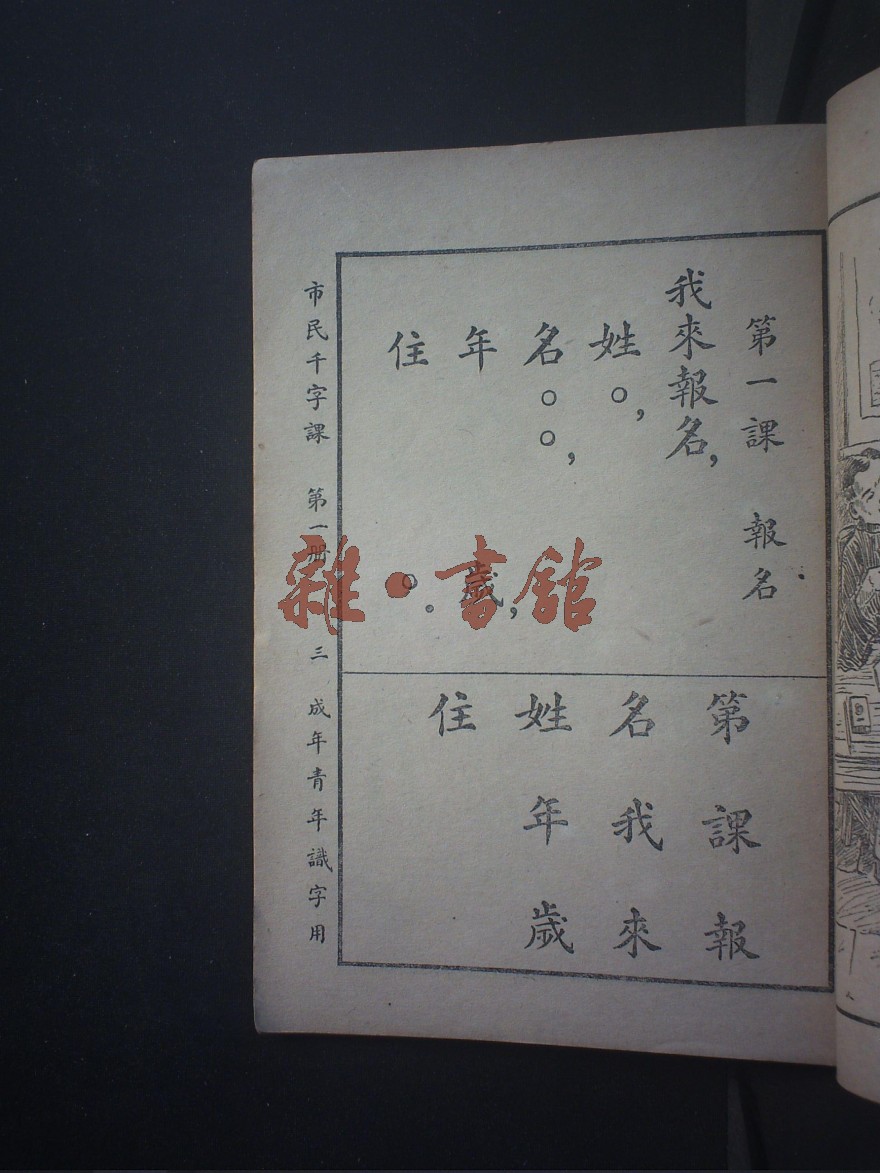 第一課 報名
我來報名，
姓○，
名○○，
年 歲，
住 ○。
第課報
名我來
姓年歲
住
市民千字課 第一冊 三 成年青年識字用
雜·書館